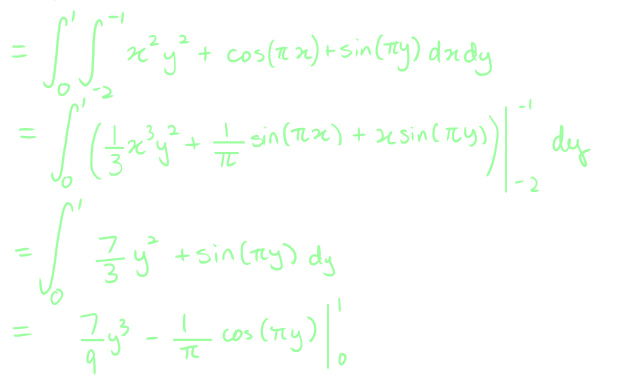 = ∫₀¹ ∫₋₂⁻¹ x²y² + cos(πx) + sin(πy) dxdy
= ∫₀¹ (1/3 x³y² + 1/π sin(πx) + x sin(πy)) |₋₂⁻¹ dy
= ∫₀¹ 7/3 y² + sin(πy) dy
= 7/9 y³ − 1/π cos(πy) |₀¹